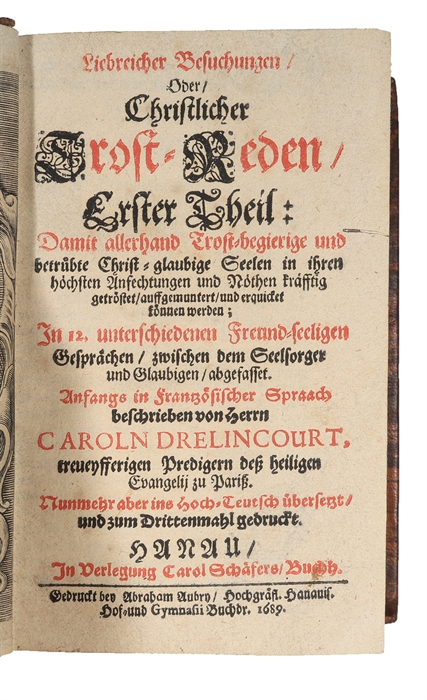 Liebreicher Besuchungen /
Oder /
Christlicher
Trost-Reden /
Erster Theil:
Damit allerhand Trost-begierige und
betrübte Christ-glaubige Seelen in ihren
höchsten Anfechtungen und Nöthen kräfftig
getröstet / auffgemuntert / und erquicket
können werden;
In 12. unterschiedenen Freund-seeligen
Gesprächen / zwischen dem Seelsorger
und Glaubigen / abgefasset.
Anfangs in Frantzösischer Spraach
beschrieben von Herrn
CAROLN DRELINCOURT,
treueyfferigen Predigern deß heiligen
Evangelij zu Pariß.
Nunmehr aber ins Hoch-Teutsch übersetzt /
und zum Drittenmahl gedruckt.
HANAU /
In Verlegung Carol Schäfers / Buchh.
Gedruckt bey Abraham Aubry / Hochgräfl. Hanauis.
Hof-und Gymnasii Buchdr. 1689.